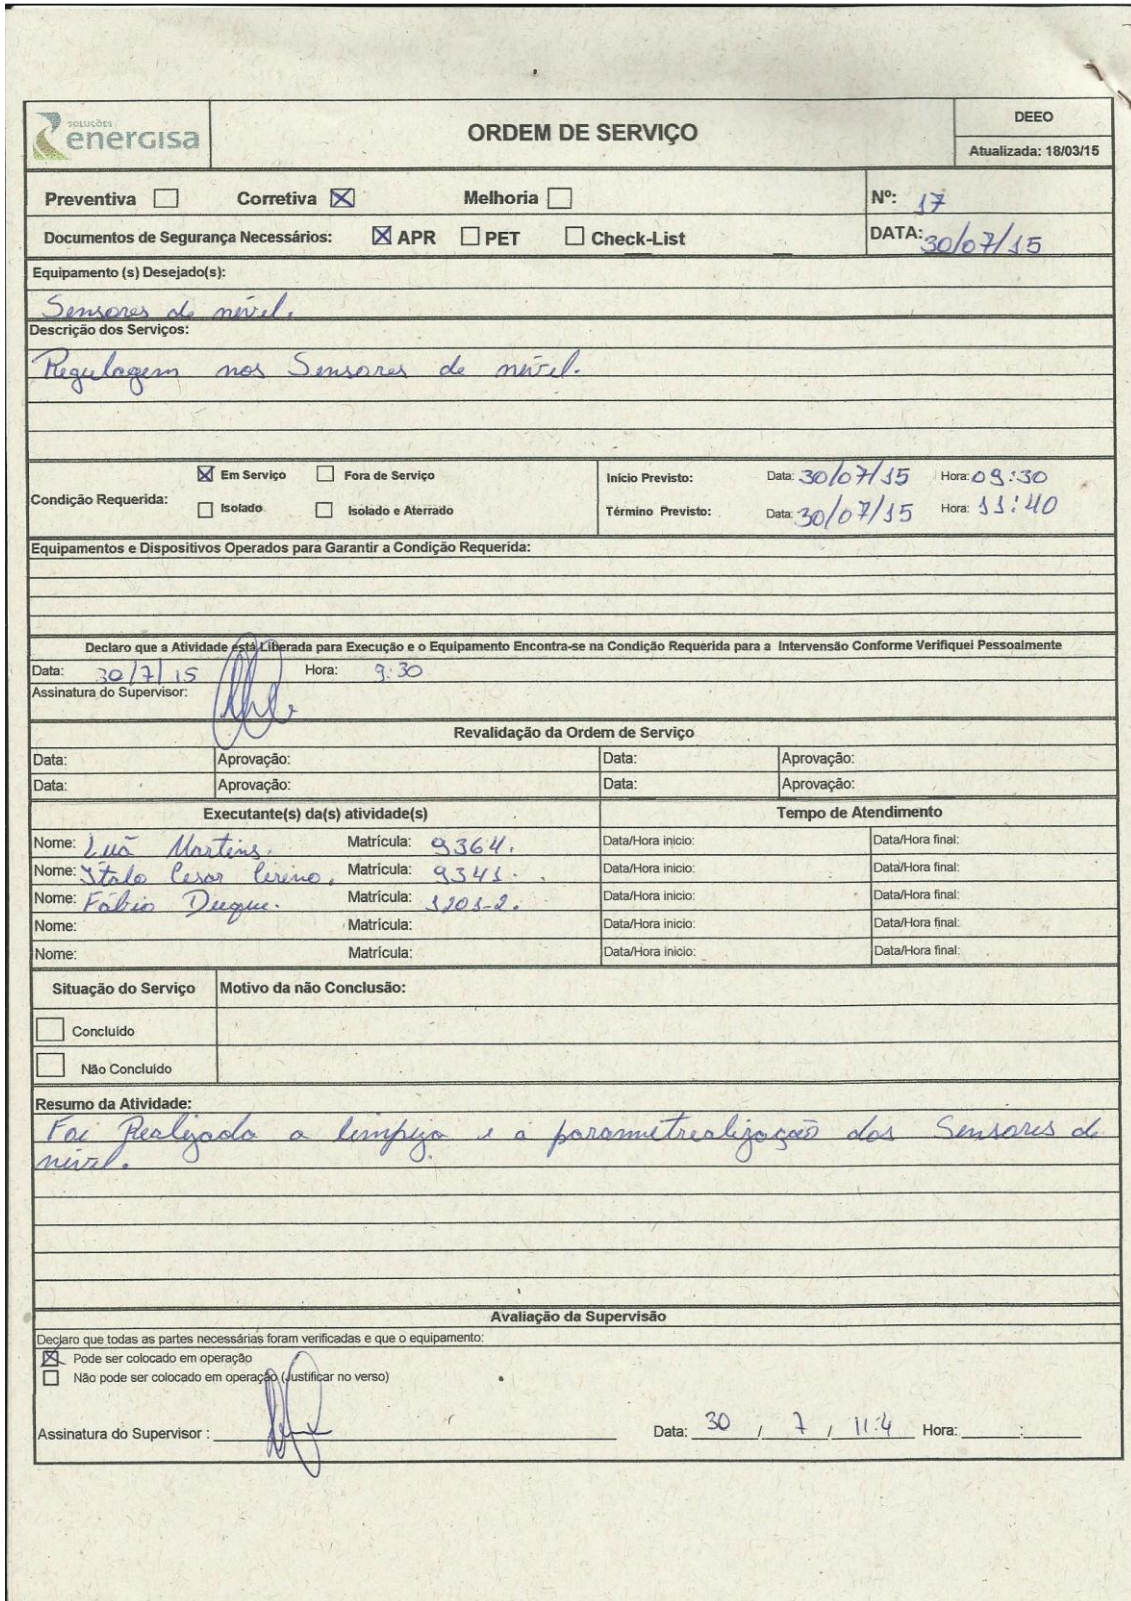 SOLUÇÕES
energisa
ORDEM DE SERVIÇO
DEEO
Atualizada: 18/03/15
Preventiva Corretiva Melhoria
Nº: 17
Documentos de Segurança Necessários: APR PET Check-List
DATA: 30/07/15
Equipamento (s) Desejado(s):
Sensores de nível.
Descrição dos Serviços:
Regulagem nos Sensores de nível.
Em Serviço Fora de Serviço
Inicio Previsto: Data: 30/07/15 Hora: 09:30
Condição Requerida:
Isolado Isolado e Aterrado
Término Previsto: Data: 30/07/15 Hora: 11:40
Equipamentos e Dispositivos Operados para Garantir a Condição Requerida:
Declaro que a Atividade está Liberada para Execução e o Equipamento Encontra-se na Condição Requerida para a Intervensão Conforme Verifiquei Pessoalmente
Data: 30/7/15 Hora: 9:30
Assinatura do Supervisor:
Revalidação da Ordem de Serviço
Data: Aprovação: Data: Aprovação:
Data: Aprovação: Data: Aprovação:
Executante(s) da(s) atividade(s) Tempo de Atendimento
Nome: Luã Martins. Matrícula: 9364. Data/Hora inicio: Data/Hora final:
Nome: Ítalo Cesar Cireno. Matrícula: 9341. Data/Hora inicio: Data/Hora final:
Nome: Fábio Duque. Matrícula: 1201-2. Data/Hora inicio: Data/Hora final:
Nome: Matrícula: Data/Hora inicio: Data/Hora final:
Nome: Matrícula: Data/Hora inicio: Data/Hora final:
Situação do Serviço Motivo da não Conclusão:
Concluido
Não Concluido
Resumo da Atividade:
Foi Realizada a limpeza e a parametrealização dos Sensores de
nível.
Avaliação da Supervisão
Declaro que todas as partes necessárias foram verificadas e que o equipamento:
Pode ser colocado em operação
Não pode ser colocado em operação (Justificar no verso)
Assinatura do Supervisor : Data: 30 / 7 / 11:4 Hora: :